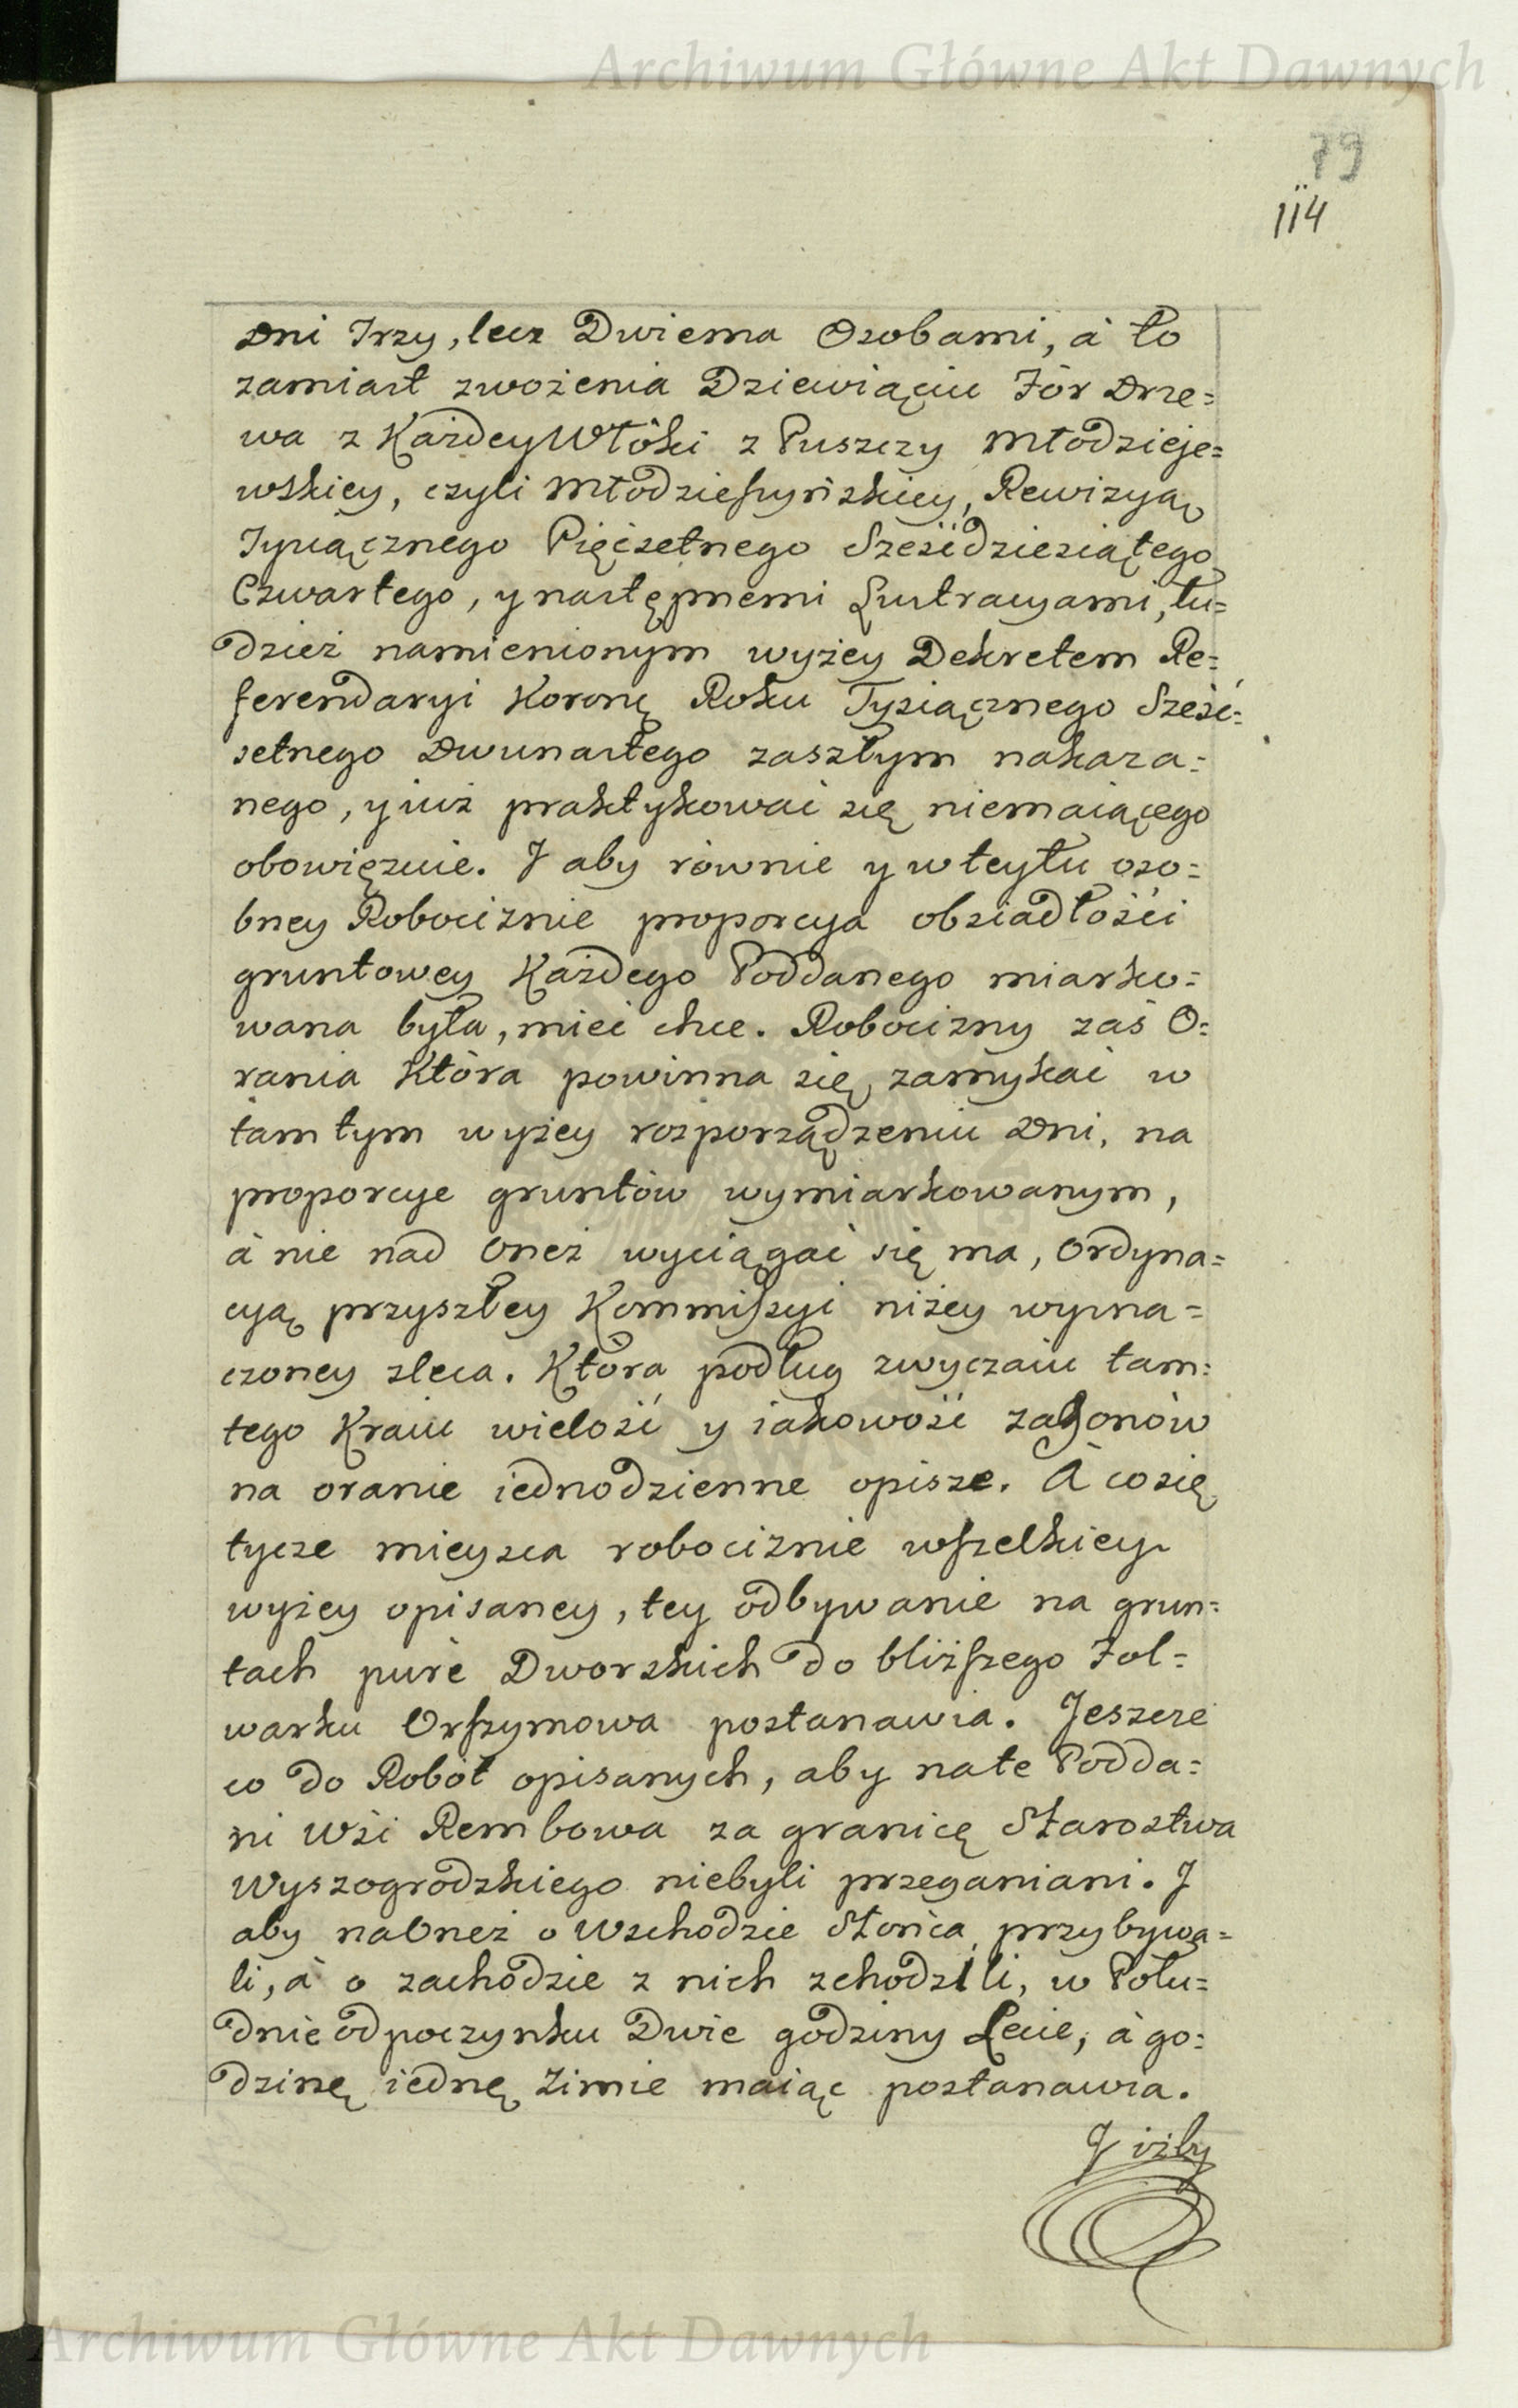 Archiwum Główne Akt Dawnych
79
114
Dni Trzy, lecz Dwiema Osobami, à to
zamiast zwożenia Dziewiąciu Fór Drze=
wa z Każdey Włóki z Puszczy Młodzieje=
wskiey, czyli Młodzieszyńskiey, Rewizyą
Tysiącznego Pięćsetnego Sześćdziesiątego
Czwartego, y następnemi Lustracyami, tu=
dzież namienionym wyżey Dekretem Re=
ferendaryi Koronę Roku Tysiącznego Sześć=
setnego Dwunastego zaszłym nakaza=
nego, y iuż praktykować się niemaiącego
obowięzuie. J aby równie y w teytu oso=
bney Robociznie proporcya obsiadłości
gruntowey Każdego Poddanego miarko=
wana była, mieć chce. Robocizny zaś O=
rania Która powinna się zamykać w
tamtym wyżey rozporządzeniu Dni, na
proporcye gruntów wymiarkowanym,
à nie nad Oneż wyciągać się ma, Ordyna=
cyą przyszłey Kommiszyi niżey wyzna=
czoney zleca. Która podług zwyczaiu tam=
tego Kraiu wielość y iakowość zagonów
na oranie iednodzienne opisze. A co się
tycze mieysca robociznie wszelkiey
wyżey opisaney, tey odbywanie na grun=
tach puré Dworskich do bliższego Fol=
warku Orszymowa postanawia. Jeszcze
co do Robót opisanych, aby na te Podda=
ni Wsi Rembowa za granicę Starostwa
Wyszogrodzkiego niebyli przeganiani. J
aby na Oneż o Wschodzie Słońca przybywa=
li, à o zachodzie z nich zchodzili, w Połu=
dnie odpoczynku Dwie godziny Lecie, à go=
dzinę iednę Zimie maiąc postanawia.
J iżby
Archiwum Główne Akt Dawnych